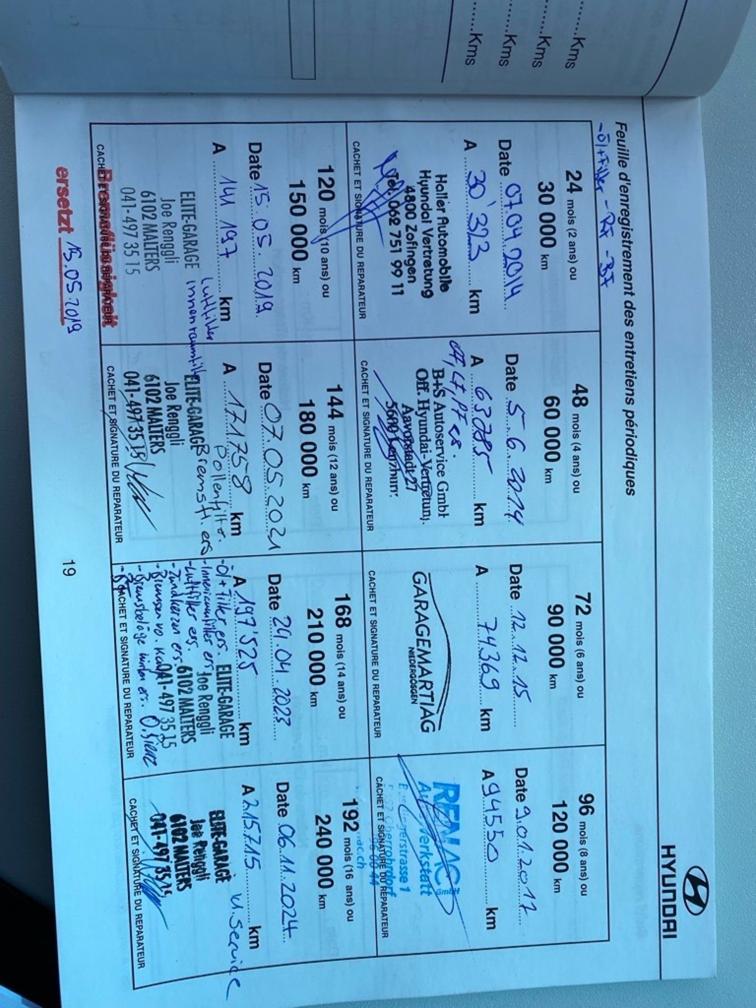 ........Kms
........Kms
........Kms
........Kms
HYUNDAI
Feuille d'enregistrement des entretiens périodiques
-Öl+Filter - RF - BF
24 mois (2 ans) ou
30 000 km
Date 07.04.2014
A 30'323 km
Haller Automobile
Hyundai Vertretung
4800 Zofingen
Tel. 062 751 99 11
CACHET ET SIGNATURE DU REPARATEUR
48 mois (4 ans) ou
60 000 km
Date 5.6.2014
A 63785 km
B+S Autoservice GmbH
Off. Hyundai-Vertretung
CACHET ET SIGNATURE DU REPARATEUR
72 mois (6 ans) ou
90 000 km
Date 12.12.15
A 74369 km
GARAGEMARTIAG
NIEDERGÖSGEN
CACHET ET SIGNATURE DU REPARATEUR
96 mois (8 ans) ou
120 000 km
Date 9.01.2017
A 94550 km
GmbH
CACHET ET SIGNATURE DU REPARATEUR
120 mois (10 ans) ou
150 000 km
Date 15.05.2019
A 141 197 km
Luftfilter
Innenraumfilter
ELITE-GARAGE
Joe Renggli
6102 MALTERS
041-497 35 15
Bremsflüssigkeit
ersetzt 15.05.2019
144 mois (12 ans) ou
180 000 km
Date 07.05.2021
A 171758 km
Pollenfilter
Bremsfl. ers
ELITE-GARAGE
Joe Renggli
6102 MALTERS
041-497 35 15
CACHET ET SIGNATURE DU REPARATEUR
168 mois (14 ans) ou
210 000 km
Date 24.04.2023
A 197'525 km
-Öl+Filter ers.
-Innenraumfilter ers
-Luftfilter ers.
-Zündkerzen ers
ELITE-GARAGE
Joe Renggli
6102 MALTERS
041-497 35 15
-Bremsbeläge hinten ers.
CACHET ET SIGNATURE DU REPARATEUR
192 mois (16 ans) ou
240 000 km
Date 06.11.2024
A 215715 km
Service
ELITE-GARAGE
Joe Renggli
6102 MALTERS
041-497 35 15
CACHET ET SIGNATURE DU REPARATEUR
19